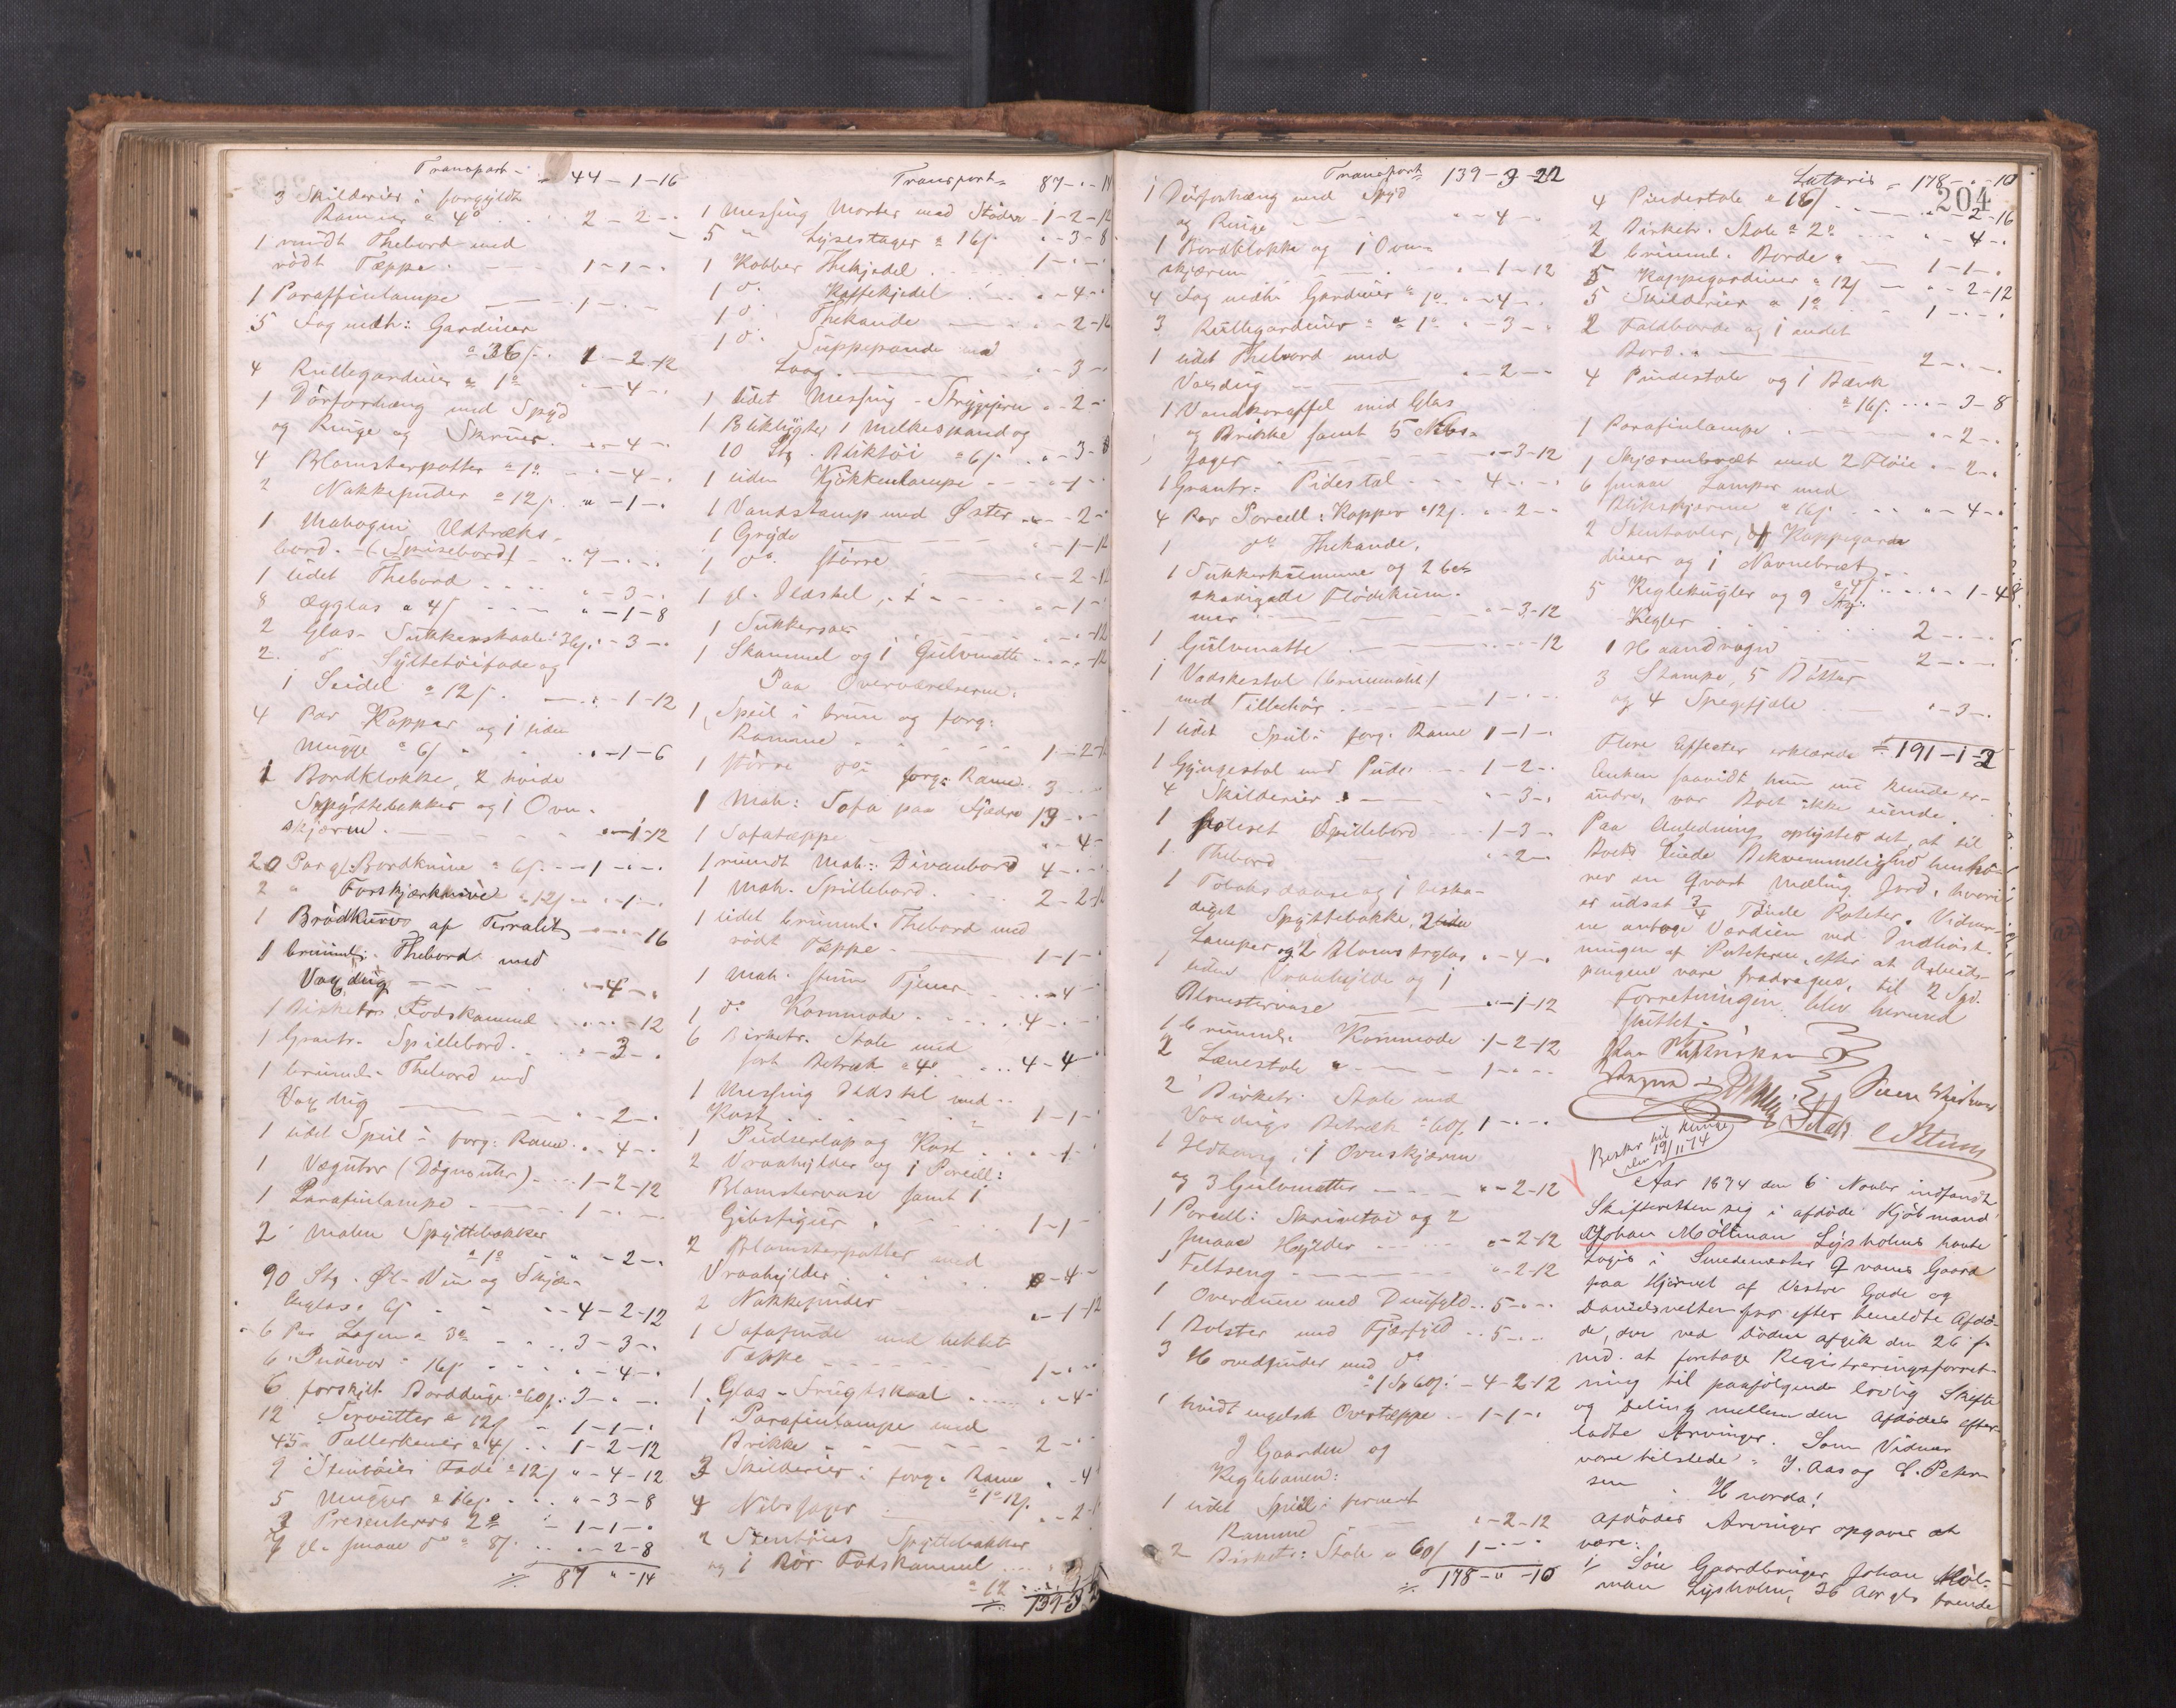 Transport - " 44 - 1 - 16
3 Skilderier i forgyldt
Rammer a 4º . . 2 - 2 - "
1 rundt Thebord med
rödt Tæppe . - - 1 - 1 - "
1 Paraffinlampe - - 1 - " - "
5 Fag ndh: Gardiner
a 36/. . 1 - 2 - 12
4 Rullegardiner a 1º " - 4 - "
1 Dörforhæng med Spyd
og Ringe og Skruer . " - 4 - "
4 Blomsterpotter a 1º - " - 4 - "
2 Nakkepuder a 12/. " - 1 - "
1 Mahogni Udtræks-
bord - (Spisebord) - . 7 - " - "
1 lidet Thebord . . . " - 3 - "
8 Ægglas a 4/ - - - " - 1 - 8
2 Glas-Sukkerskaale a 36/. " - 3 - "
2 dº Syltetöifade og
1 Seidel a 12/. - " - 1 - 12
4 Par Kopper og 1 liden
Mugge a 6/ " . " - 1 - 6
1 Bordklokke, 2 hvide
Spyttebakker og 1 Ovn-
skjærm . - - - " - 1 - 12
20 Par gl. Bordknive a 6/. - 1 - " - "
2 " Forskjærknive a 12/ - " - 1 - "
1 Brödkurv af Terralit - " - " - 16
1 brunml. Thebord med
Voxdug - - - - " - 4 - "
1 Birketr. Fodskammel . . " - " - 12
1 Grantr. Spillebord . . " - 3 - "
1 brunml. Thebord med
Voxdug - - - " - 2 - "
1 lidet Speil i forg: Rame . " - 4 - "
1 Vægtuhr (Dögnsuhr) - . 1 - 2 - 12
1 Parafinlampe - - 1 - " - "
2 malen Spyttebakker
a 1º - " - 2 - "
90 Stk. Öl- Vin og Skjæn-
keglas a 6/ - . " - 4 - 2 - 12
6 Par Lagen a 3º - . 3 - 3 - "
6 Pudevar a 16/. . . " - 4 - "
6 forskjll. Bordduge a 60/. 3 - " - "
12 Servietter a 12/ - 1 - 1 - "
45 Tallerkener a 4/. . 1 - 2 - 12
9 Stentöies Fade a 12/ " - 4 - 12
5 Mugger a 16/. . . " - 3 - 8
3 Presenterb. 2º - 1 - 1 - "
7 gl. smaae dº a 8/. . . " - 2 - 8
./. 87 " - 14
Transport - 87 - " - 14
1 Messing Morter med Stöder - 1 - 2 - 12
5 " Lysestager a 16/. " - 3 - 8
1 Kobber Thekjedel . . 1 - " - "
1 dº Kaffekjedel . . " - 4 - "
1 dº Thekande - " - 2 - 16
1 dº Suppepande med
Laag . - - " - 3 - "
1 lidet Messing - Strygejern " - 2 - "
1 Bliklygte, 1 Melkespand og
10 Stk. Bliktöi a 6/. . " - 3 - 8
1 liden Kjökkenlampe - - - " - 1 - "
1 Vandstamp med Øster - " - 2 - "
1 Gryde - - " - 1 - 12
1 dº större - - " - 2 - 12
1 gl. Ildstel . - - " - 1 - "
1 Sukkersax . . . " - " - 12
1 Skammel og 1 Gulvmatte . " - " - 12
Paa Overværelserne:
1 Speil i brun og forg:
Ramme . . . . 1 - 2 - 12
1 större dº i forg: Rame . 3 - " - "
1 Mah: Sofa paa Fjædre 13 - " - "
1 Sofatæppe . " - 4 - "
1 rundt Mah: Divanbord 4 - " - "
1 Mah. Spillebord . . 2 - 2 - 12
1 lidet brunml. Thebord med
rödt Tæppe - - 1 - 1 - "
1 Mah. stum Tjener - . " - 4 - "
1 dº Kommode . . . 4 - " - "
6 Birketr. Stole med
sort Betræk a 4º . . . 4 - 4 - "
1 Messing Ildstel med
Kost . . . 1 - 1 - "
1 Pudserlap og Kost . . " - 1 - "
2 Vraahylder og 1 Porcell:
Blomstervase samt 1
Gibsfigur . - - 1 - 1 - "
2 Blomsterpotter med
Vraahylder . . . " - 4 - "
2 Nakkepuder " - 1 - 12
1 Sofapude med heklet
Tæppe - - - 1 - " - "
1 Glas-Frugtskaal . . . " - 4 - "
1 Parafinlampe med
Brikke - - - 2 - " - "
3 Skilderier i forg: Rame " - 4 -
a 1º 12/.
4 Nibssager . . . " - 2 -
2 Stentöies Spyttebakker
og 1 Rör Fodskammel
a 12
./. 139 - 3 - 22
Transport 139 - 3 - 22
1 Dörforhæng med Spyd
og Ringe - - " - 4 - "
1 Bordklokke og 1 Ovn-
skjærm - - . " - 1 - 12
4 Fag ndh: Gardiner a 1º " - 4 - "
3 Rullegardiner a 1º . " - 3 - "
1 lidet Thebord med
Voxdug - - - " - 2 - "
1 Vandkaraffel med Glas
og Brikke samt 5 Nibs-
sager - - - " - 3 - 12
1 Grantr. Pidestal - - - 4 - " - "
4 Par Porcell: Kopper a 12/. " - 2 - "
1 dº Thekande,
1 Sukkerkumme og 2 be-
skadigede Flödekum-
mer - - - " - 3 - 12
1 Gulvmatte . - - " - " - 12
1 Vadskestol (brunmalet)
med Tilbehör - - - 1 - " - "
1 lidet Speil i forg. Rame 1 - 1 - "
1 Gyngestol med Pude - - 1 - 2 - "
4 Skilderier . - - " - 3 - "
1 poleret Spillebord - - 1 - 3 - "
1 Thebord " - 2 - "
1 Tobaksdaase og 1 beska-
diget Spyttebakke, 2 liden
Lamper og 2 Blomsterglas " - 4 - "
1 liden Vraahylde og 1
Blomstervase - - " - 1 - 12
1 brunml. Kommode 1 - 2 - 12
2 Lænestole " - - 1 - " - "
2 Birketr. Stole med
Voxdugs Betræk a 60/. 1 - " - "
1 Ildtang, 1 Ovnskjærm
og 3 Gulvmatter - - - " - 2 - 12
1 Porcell: Skrivetöi og 2
smaae Hylder - - " - 2 - 12
1 Feltseng - - - " - 2 - 12
1 Overdune med Duunfyld . . 5 - " - "
1 Bolster med Fjærfyld . . 5 - " - "
3 Hovedpuder med dº
a 1 Sp 60/. - 4 - 2 - 12
1 hvidt engelsk Overtæppe . . 1 - 1 - "
I Gaarden og
Keglebanen:
1 lidet Speil i fernert
Ramme - - " - 2 - 12
2 Birketr: Stole a 60/ 1 - " - "
./. 178 - " - 10
Lateris " 178 - " - 10
204
4 Pindestole a 16/ . - - " - 2 - 16
2 Birketr. Stole a 2º . . " - 4 - "
2 brunml. Borde a - 1 - 1 - "
5 Kappegardiner a 12/ - " - 2 - 12
5 Skilderier a 1º . . 1 - " - "
2 Foldborde og 1 andet
Bord . - - 2 - " - "
4 Pindestole og 1 Bænk
a 16/. . . " - 3 - 8
1 Parafinlampe . - - " - 2 - "
1 Skjærmbræt med 2 Flöie " - 2 - "
6 smaae Lamper med
Blikskjærme a 16/. . . " - 4 - "
2 Stentavler, 4 Kappegar-
diner og 1 Navnebræt
a 4/. . . " - 1 - 48
5 Keglekugler og 9 Stk.
Kegler . . . . 2 - " - "
1 Haandvogn - 2 - " - "
3 Stampe, 5 Bötter
og 4 Spegefjæle - " - 3 - "
./. 191 - 1 - 2
Flere Effecter erklærede
Enken saavidt hun nu kunde er-
indre, var Boet ikke eiende.
Paa Anledning oplystes det, at til
Boets Eiede Bekvemmelighed henhö-
rer en Qvart Mæling Jord, hvori
er udsat 3/4 Tönde Poteter. Vidner-
ne antoge Værdien ved Indhöst-
ningen af Poteterne, efter at Arbeids-
pengene vare fradragne, til 2 Spd.
Forretningen blev hermed
sluttet.
Besker til Kunge
den 19/11 74
Aar 1874 den 6 Novbr. indfandt
Skifteretten sig i afdöde Kjöbmand
Johan Möltman Lysholms havte
Logis i Smedemester Qvams Gaard
paa Hjörnet af Vestre Gade og
Danielsveiten for efter bemeldte Afdö-
de, der ved Döden afgik den 26 f.
Md. at foretage Registreringsforret-
ning til paafölgende lovlig Skifte
og Deling mellem den Afdödes efter-
ladte Arvinger. Som Vidner
vare tilstede: J. Aas og E. Peter-
sen. Hvorda!
Afdödes Arvinger opgaves at
være:
1/ Sön Gaardbruger Johan Möl-
man Lysholm, 36 Aar gl. boende